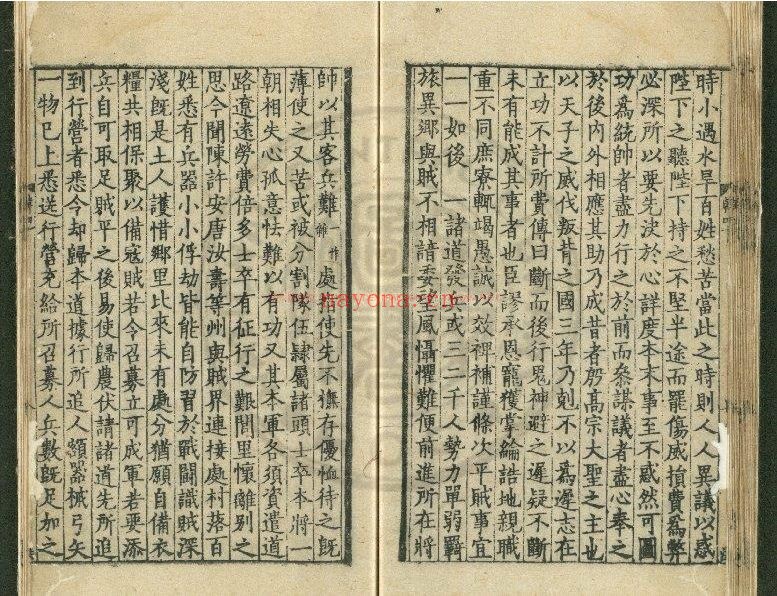 時小遇水旱百姓愁苦當此之時則人人異議以惑
陛下之聽陛下持之不堅半途而罷傷威損費為弊
必深所以要先決於心詳度本末事至不惑然可圖
功為統帥者盡力行之於前而叅謀議者盡心奉之
於後内外相應其助乃成昔者殷高宗大聖之主也
以天子之威伐叛背之國三年乃剋不以為遲志在
立功不計所費傳曰斷而後行鬼神避之遲疑不斷
未有能成其事者也臣謬承恩寵獲掌綸誥地親職
重不同庶寮輒竭愚誠以效裨補謹條次平賊事宜
一一如後 一諸道發兵或三二千人勢力單弱羈
旅異鄉與賊不相諳委望風懾懼難便前進所在將
帥以其客兵難處指使先不撫存優恤待之既
薄使之又苦或被分割隊伍隷屬諸頭士卒本將一
朝相失心孤意怯難以有功又其本軍各須資遣道
路遼遠勞費倍多士卒有征行之艱閭里懷離别之
思今聞陳許安唐汝壽等州與賊界連接處村落百
姓悉有兵器小小俘劫皆能自防習於戰鬪識賊深
淺既是土人護惜鄉里比來未有處分猶願自備衣
糧共相保聚以備寇賊若令召募立可成軍若要添
兵自可取足賊平之後易使歸農伏請諸道先所追
到行營者悉令却歸本道據行所追人額器械弓矢
一物已上悉送行營充給所召募人兵數既足加之